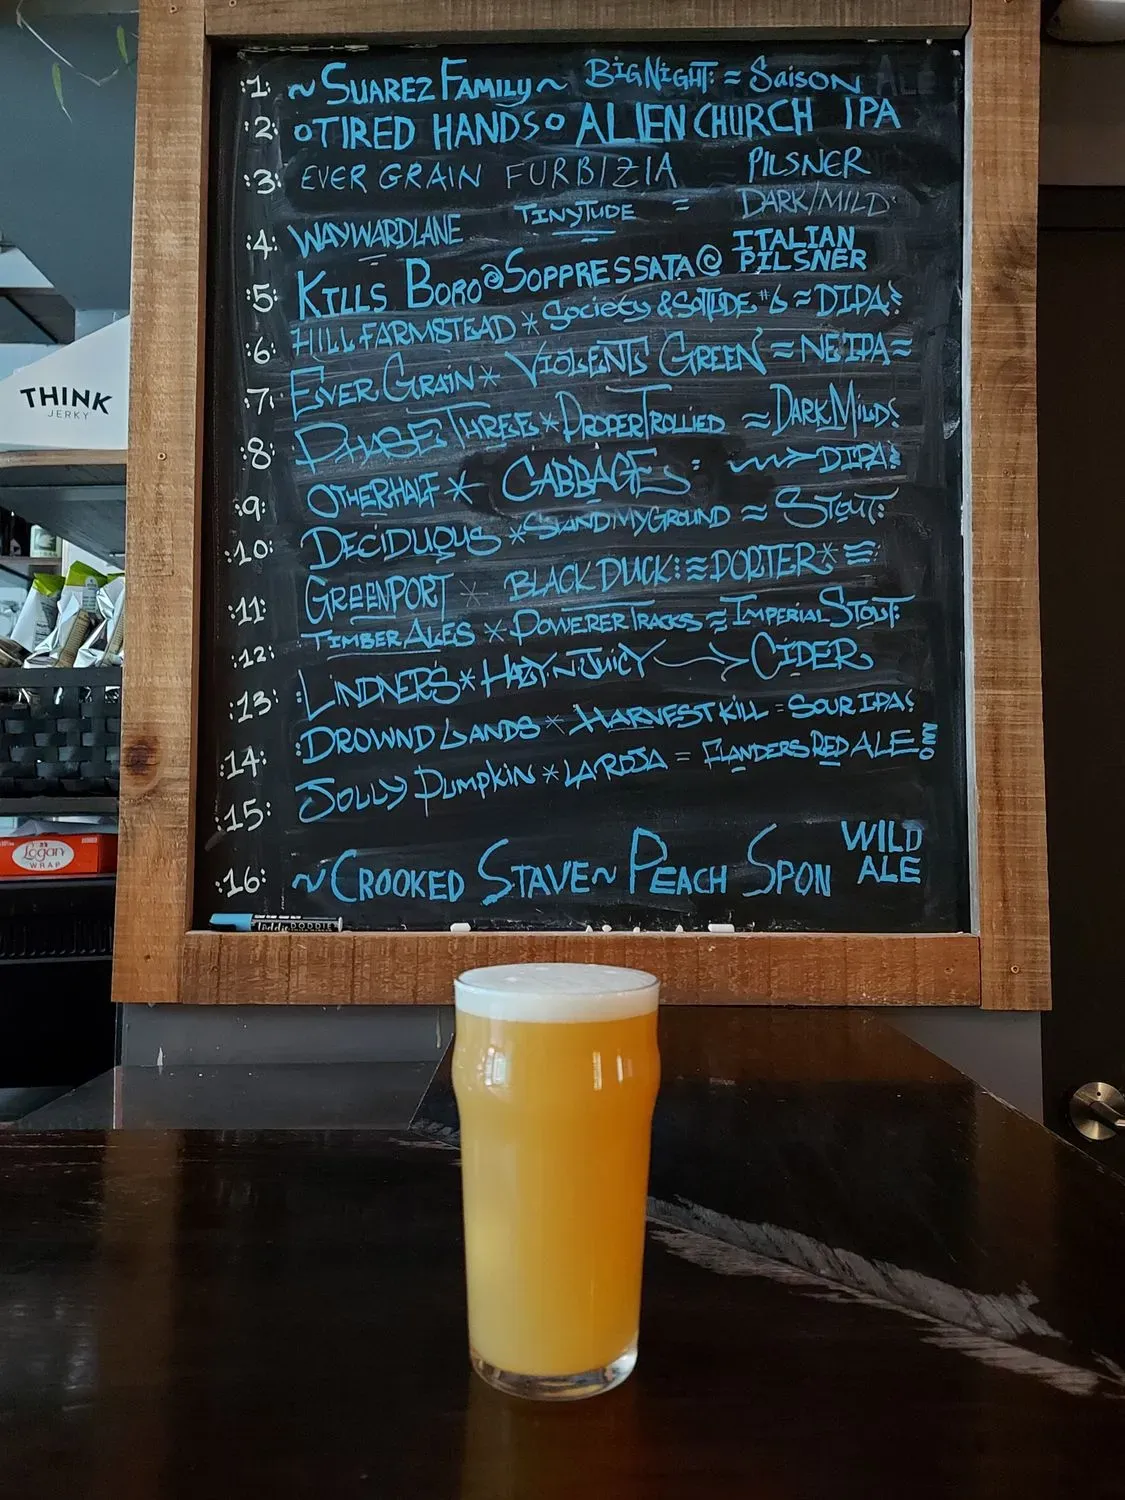 :1: ~ SUAREZ FAMILY ~ BIG NIGHT: = SAISON ALE
:2: °TIRED HANDS° ALIEN CHURCH IPA
:3: EVER GRAIN FURBIZIA PILSNER
:4: WAYWARDLANE TINYTUDE = DARK/MILD
:5: KILLS BORO @ SOPPRESSATA @ ITALIAN PILSNER
:6: HILL FARMSTEAD * SOCIETY & SOLITUDE #6 ≈ DIPA
:7: EVER GRAIN * VIOLENTS GREEN ≈ NEIPA ≈
:8: PHASE THREE * PROPER TROLLIED ≈ DARK MILD
:9: OTHERHALF * CABBAGE : DIPA
:10: DECIDUOUS * STAND MY GROUND ≈ STOUT
:11: GREENPORT * BLACK DUCK : PORTER *
:12: TIMBER ALES * POWERER TRACKS ≈ IMPERIAL STOUT
:13: LINDNERS * HAZY N JUICY → CIDER
:14: DROWND LANDS * HARVEST KILL = SOUR IPA
:15: JOLLY PUMPKIN * LA ROJA = FLANDERS RED ALE
:16: ~ CROOKED STAVE ~ PEACH SPON WILD ALE
THINK
JERKY
Logan
WRAP